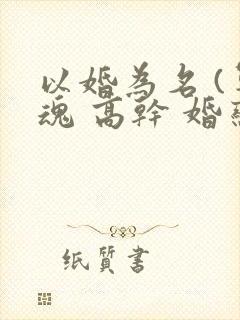 以婚為名(
魂 高幹 婚
纸质書